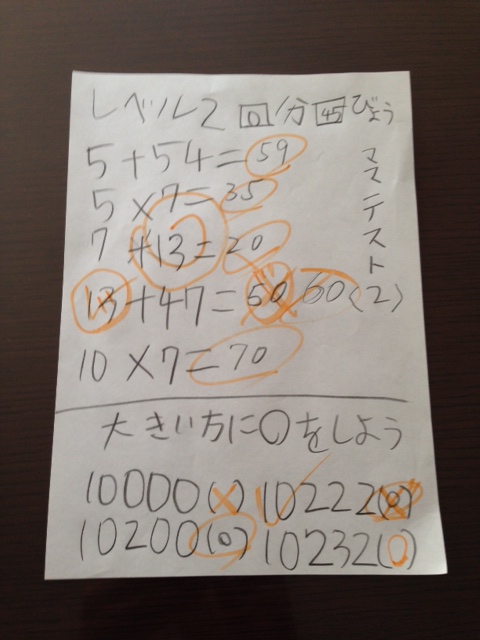 レベル2 0分45びょう
5+54=59
5×7=35
7+13=20
13+47=50 60
10×7=70
ママテスト(2)
大きい方に○をしよう
10000( ) 10222(○)
10200(○) 10232(○)